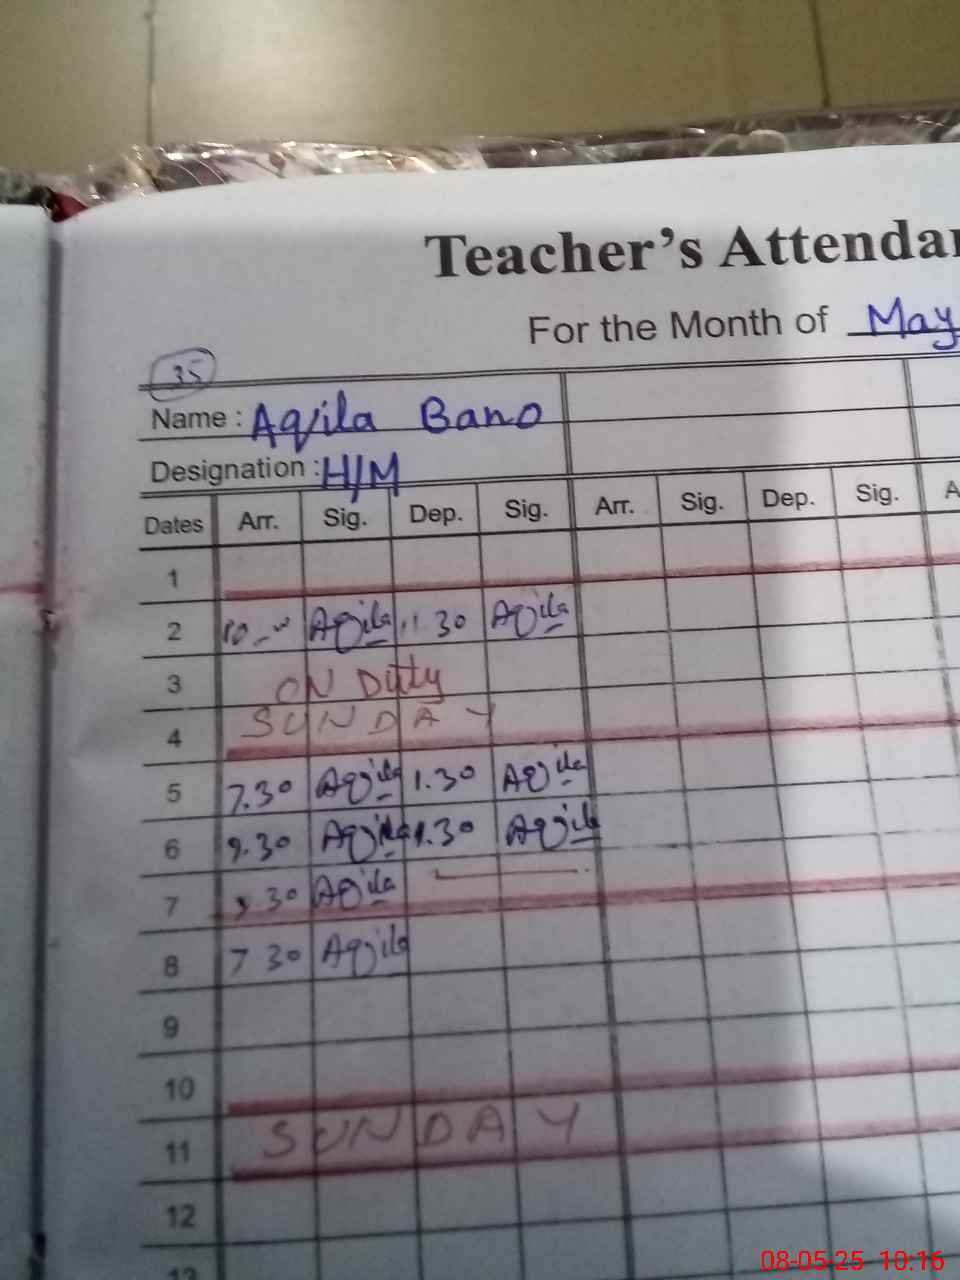 Teacher's Attendan
For the Month of May
35
Name : Aqila Bano
Designation : H/M
Dates Arr. Sig. Dep. Sig. Arr. Sig. Dep. Sig. A
1
2 10 Aqila 11.30 Aqila
3 ON Duty
4 SUNDAY
5 7.30 Aqila 1.30 Aqila
6 9.30 Aqila 1.30 Aqila
7 30 Aqila
8 7 30 Aqila
9
10
11 SUNDAY
12
13
08-05-25 10:16